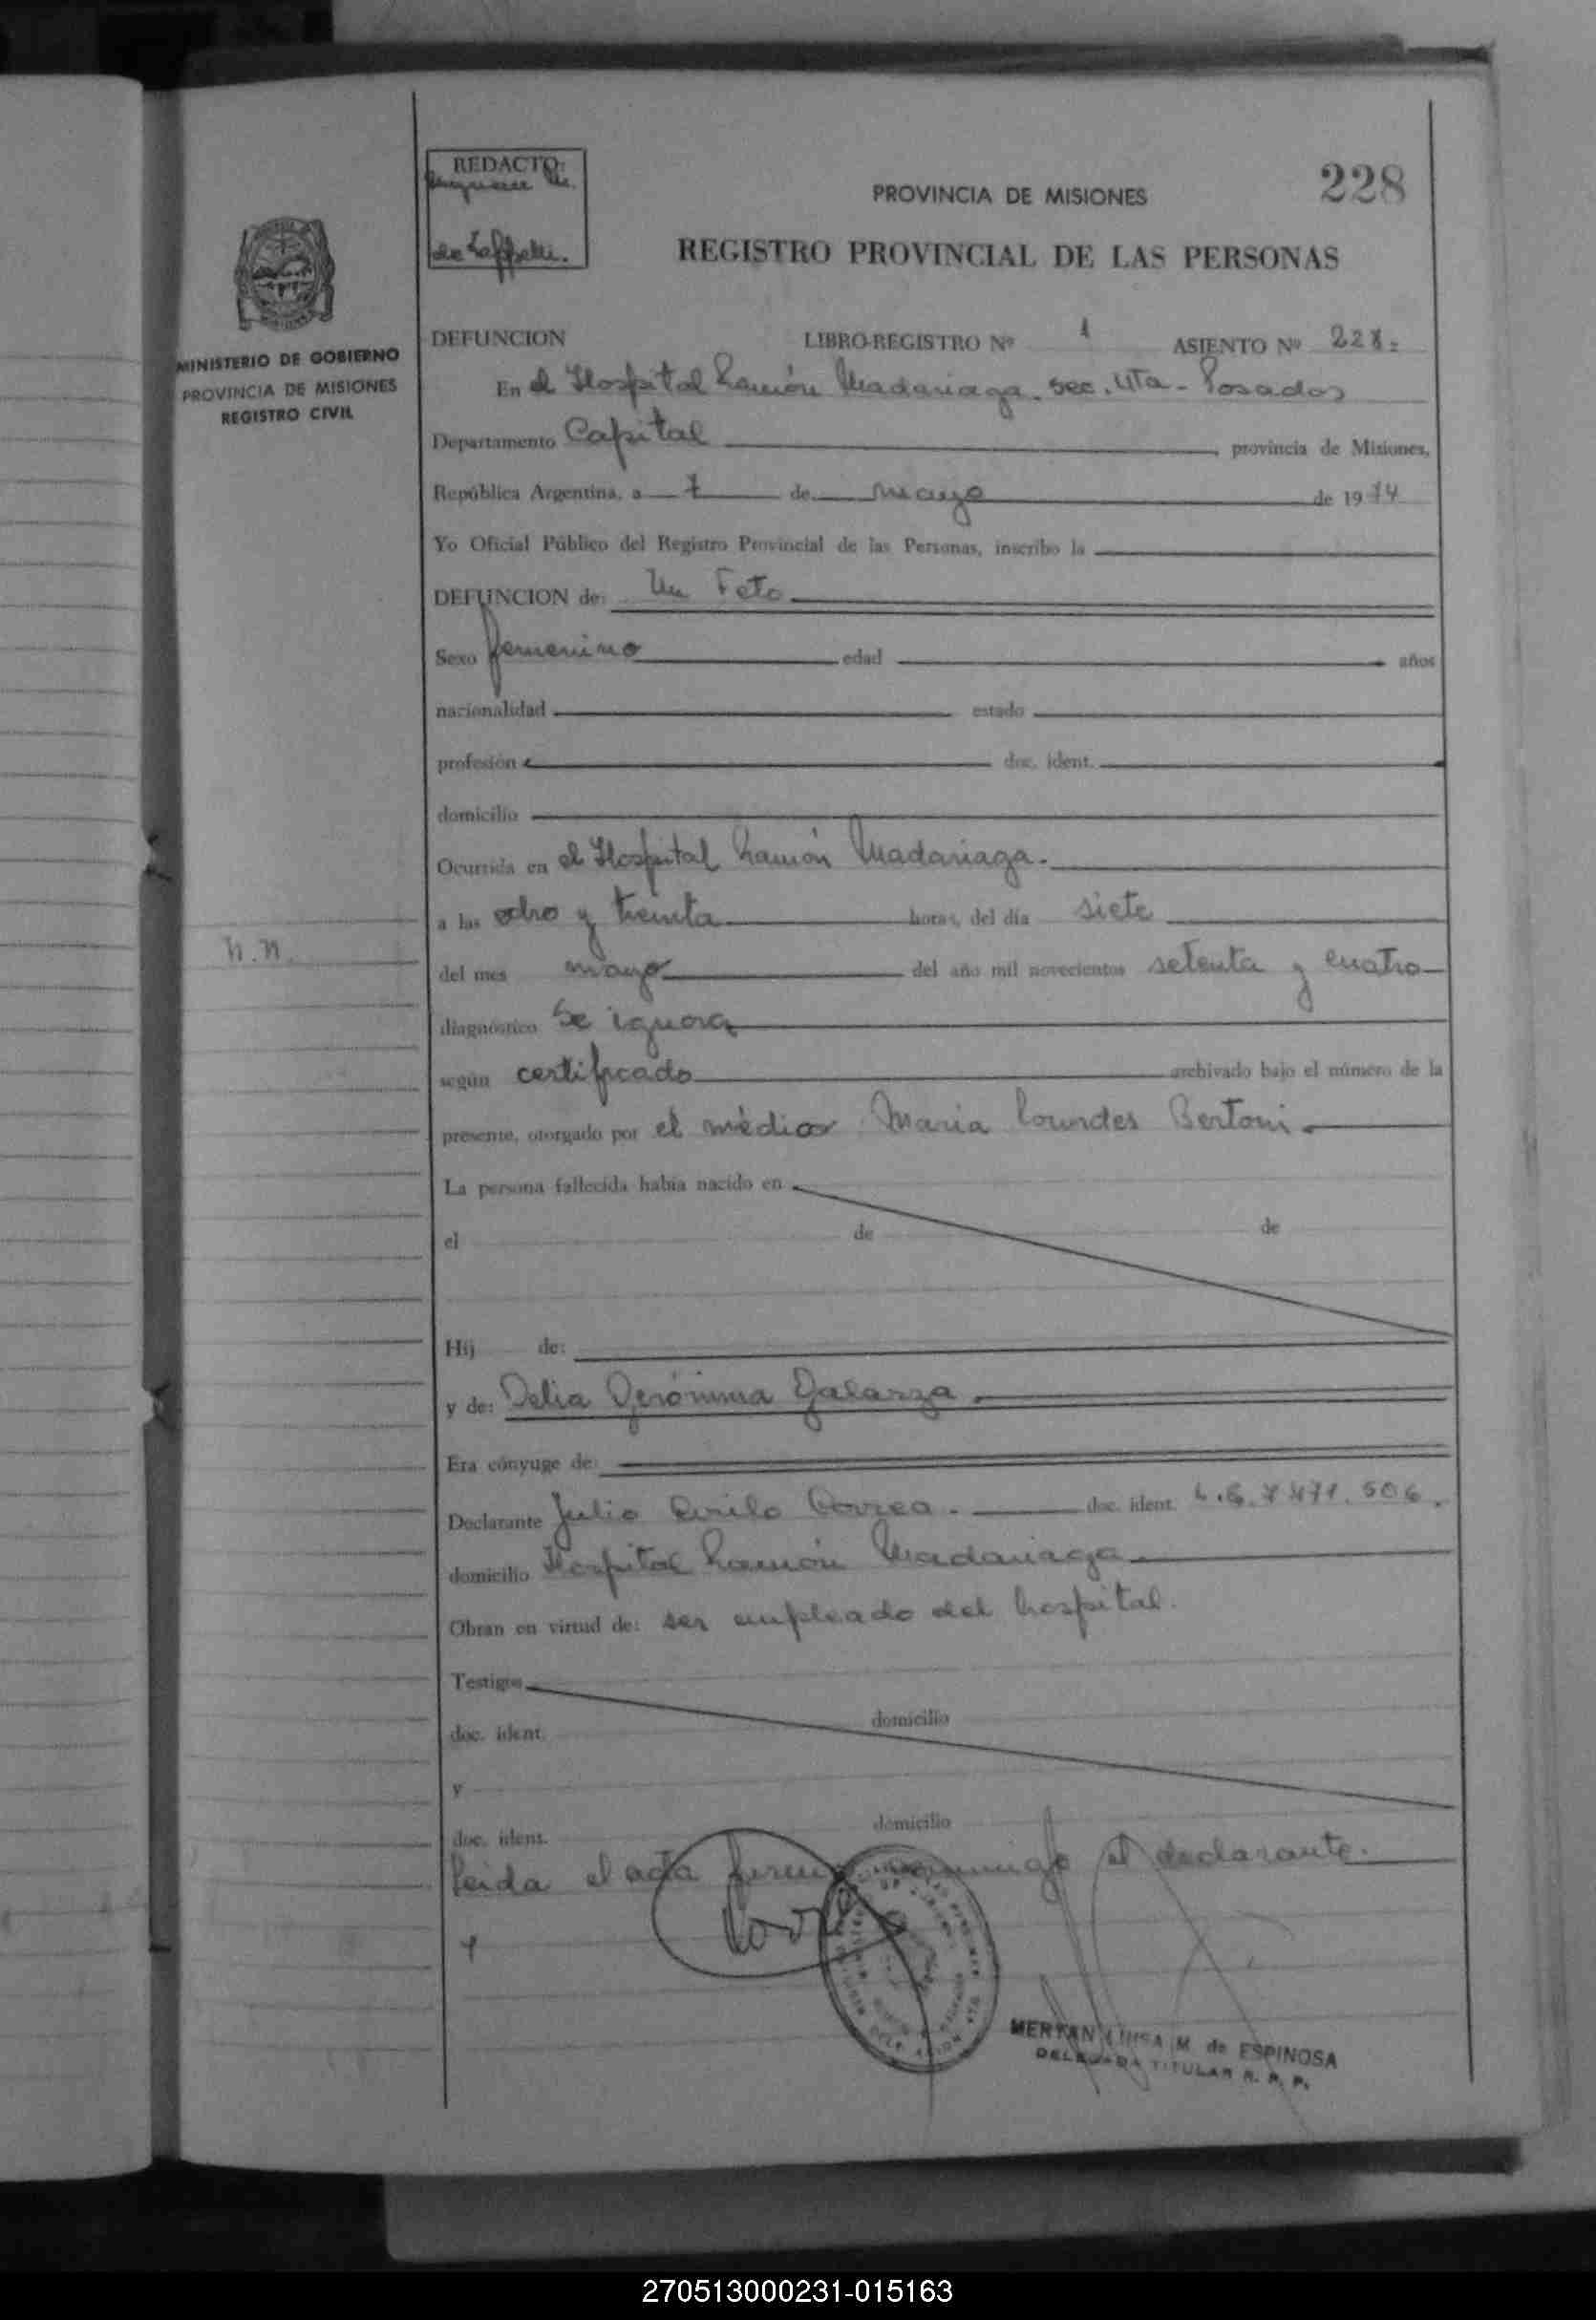 REDACTO:
de
228
PROVINCIA DE MISIONES
REGISTRO PROVINCIAL DE LAS PERSONAS
MINISTERIO DE GOBIERNO
PROVINCIA DE MISIONES
REGISTRO CIVIL
DEFUNCION LIBRO-REGISTRO Nº 1 ASIENTO Nº 228.
En el Hospital Ramón Madariaga. Sec. 4ta - Posadas
Departamento Capital, provincia de Misiones,
República Argentina, a 7 de mayo de 1974
Yo Oficial Público del Registro Provincial de las Personas, inscribo la
DEFUNCION de: Un Feto
Sexo femenino edad años
nacionalidad estado
profesión doc. ident.
domicilio
Ocurrida en el Hospital Ramón Madariaga.
a las ocho y treinta horas, del día siete
N.N.
del mes mayo del año mil novecientos setenta y cuatro
diagnóstico Se ignora
según certificado archivado bajo el número de la
presente, otorgado por el médico Maria Lourdes Bertoni.
La persona fallecida había nacido en
el de de
Hij de:
y de: Delia Gerónima Galarza.
Era cónyuge de:
Declarante Julio Cirilo Correa. doc. ident. L.E. 7.471.506.
domicilio Hospital Ramón Madariaga.
Obran en virtud de: ser empleado del hospital.
Testigos
doc. ident. domicilio
y
doc. ident. domicilio
Leida el acta firma conmigo el declarante.
MERYAN LUISA M. de ESPINOSA
DELEGADA TITULAR R. P. P.
270513000231-015163